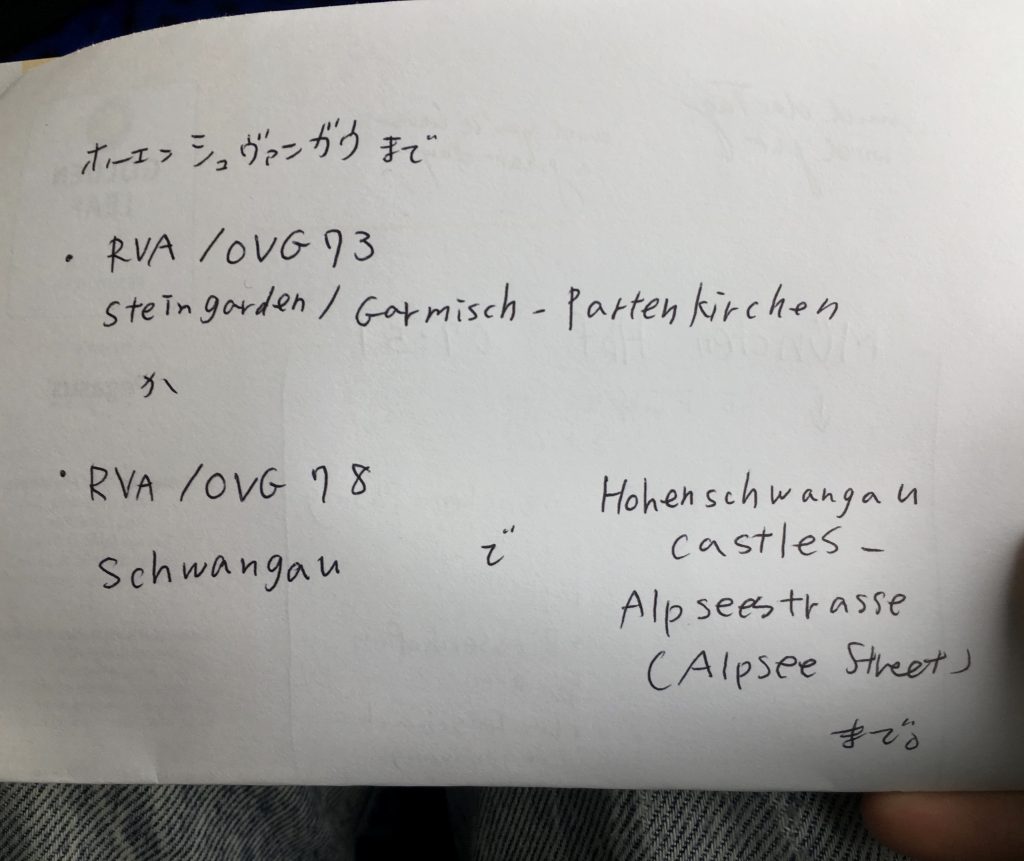 ホーエンシュヴァンガウまで
・RVA /OVG 73
Steingarden / Garmisch - Partenkirchen
か
・RVA /OVG 78
Schwangau
で
Hohenschwangau
castles -
Alpseestrasse
(Alpsee Street)
まで。